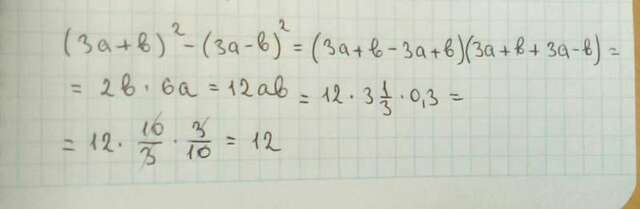 (3a+b)² - (3a-b)² = (3a+b-3a+b)(3a+b+3a-b) =
= 2b · 6a = 12ab = 12 · 3 1/3 · 0,3 =
= 12 · 10/3 · 3/10 = 12